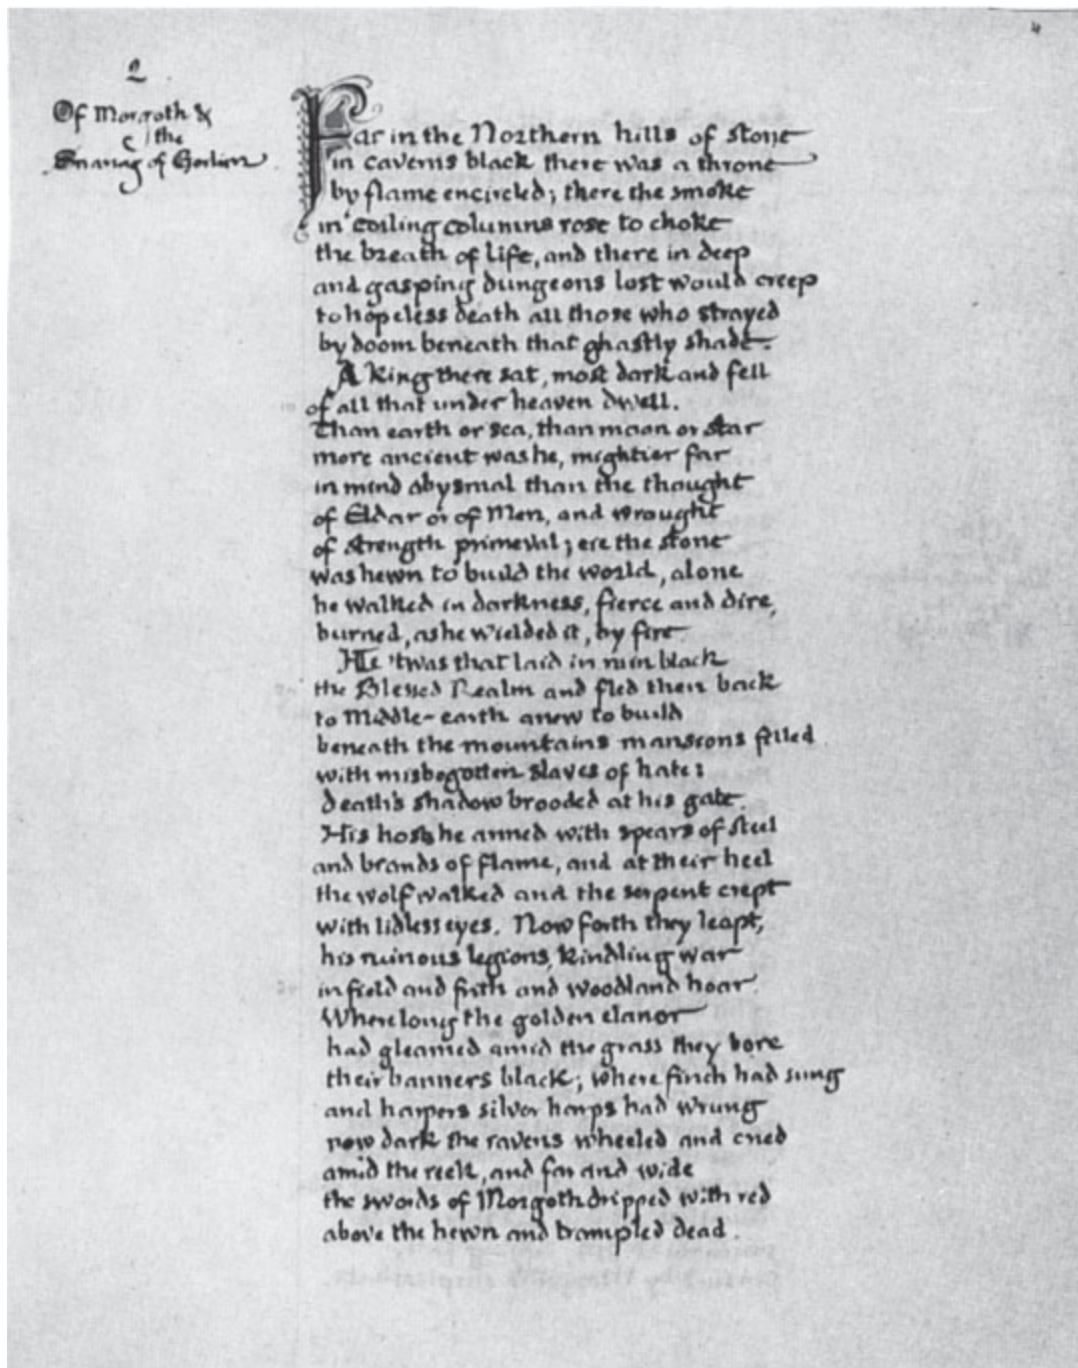 4
2
Of Morgoth &
the
Snaring of Gorlim
Far in the Northern hills of stone
in caverns black there was a throne
by flame encircled; there the smoke
in coiling columns rose to choke
the breath of life, and there in deep
and gasping dungeons lost would creep
to hopeless death all those who strayed
by doom beneath that ghastly shade.
A king there sat, most dark and fell
of all that under heaven dwell.
Than earth or sea, than moon or star
more ancient was he, mightier far
in mind abysmal than the thought
of Eldar or of Men, and wrought
of strength primeval; ere the stone
was hewn to build the world, alone
he walked in darkness, fierce and dire,
burned, as he wielded it, by fire.
He 'twas that laid in ruin black
the Blessed Realm and fled then back
to Middle-earth anew to build
beneath the mountains mansions filled
with misbegotten slaves of hate:
death's shadow brooded at his gate.
His hosts he armed with spears of steel
and brands of flame, and at their heel
the wolf walked and the serpent crept
with lidless eyes. Now forth they leapt,
his ruinous legions, kindling war
in field and frith and woodland hoar.
Where long the golden elanor
had gleamed amid the grass they bore
their banners black; where finch had sung
and harpers silver harps had wrung
now dark the ravens wheeled and cried
amid the reek, and far and wide
the swords of Morgoth dripped with red
above the hewn and trampled dead.